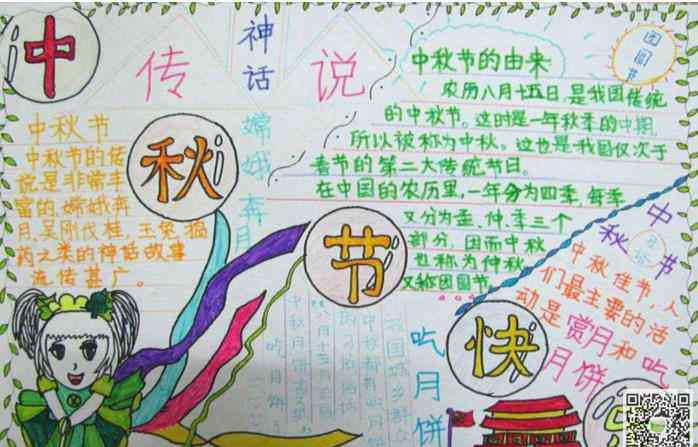 中
秋
节
快
传
神话
说
团圆节
中秋节的由来
农历八月十五日,是我国传统
的中秋节。这时是一年秋季的中期,
所以被称为中秋。这也是我国仅次于
春节的第二大传统节日。
在中国的农历里,一年分为四季,每季
又分为孟、仲、季三个
部分,因而中秋
也称为仲秋
又称团圆节。
中秋节
中秋节的传
说是非常丰
富的,嫦娥奔
月,吴刚伐桂,玉兔捣
药之类的神话故事
流传甚广。
嫦娥奔月
中秋节
中秋佳节,人
们最主要的活
动是赏月和吃
月饼
吃月饼
吃月饼